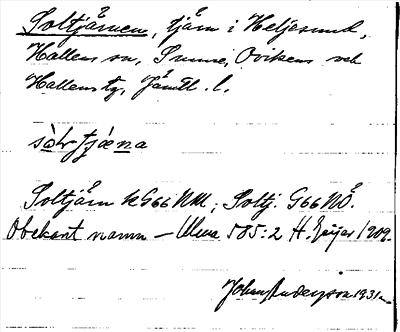 Soltjärnen, tjärn i Heljesund,
Hallens sn, Sunne, Ovikens och
Hallens tg, Jämtl. l.
sòɫtjæna
Soltjärn kG66NM; Soltj. G66NÖ.
Obekant namn – Ulma 585:2 H. Geijer 1909.
John Anderson 1931